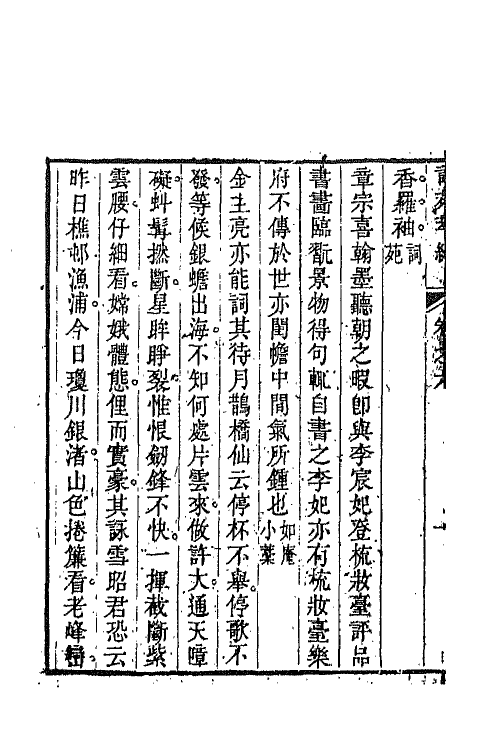 香羅袖詞苑
章宗喜翰墨聽朝之暇即與李宸妃登梳妝臺評品
書畵臨翫景物得句輒自書之李妃亦有梳妝臺樂
府不傳於世亦閨幨中閒氣所鍾也如庵小藁
金主亮亦能詞其待月鵲橋仙云停杯不舉。停歌不
發。等候銀蟾出海。不知何處片雲來。做許大。通天障
礙。虯髯撚斷。星眸睜裂。惟恨劒鋒不快。一揮截斷紫
雲腰。仔細看。嫦娥體態。俚而實豪。其詠雪昭君怨云
昨日樵邨漁浦。今日瓊川銀渚。山色捲簾看。老峰巒。